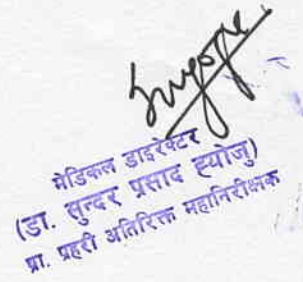 मेडिकल डाइरेक्टर
(डा. सुन्दर प्रसाद ह्योजु)
प्रा. प्रहरी अतिरिक्त महानिरीक्षक